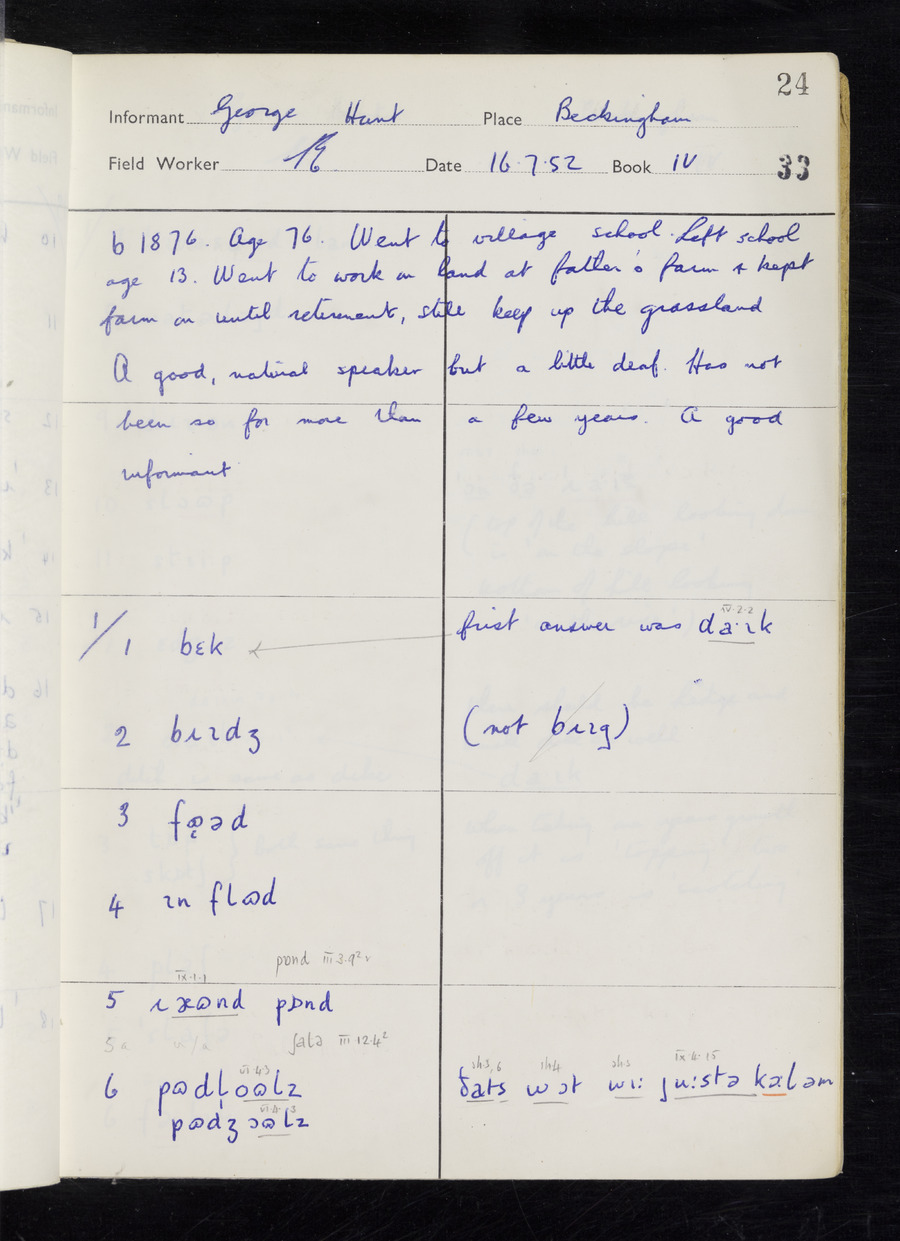 24
Informant George Hunt Place Beckingham
Field Worker Date 16.7.52 Book IV 33
b 1876. Age 76. Went to village school. Left school
age 13. Went to work on land at father's farm & kept
farm on until retirement, still keep up the grassland
A good, natural speaker but a little deaf. Has not
been so for more than a few years. A good
informant
IV.2.2
1/1 bɛk frist answer was da·ɹk
2 bɪɹdʒ (not bɪɹg)
3 fɷ̞əd
4 ɪn flɷd
pɒnd III 3.9²
IX.1.1
5 ɹæɷnd pɒnd
5a n/a ʃalə III 12.4²
VI 4.3 IX.4.15
6 pɷdl̩ oɷlz ðats wɔt wɪ: ju:stə kæləm
VI.4.3
pɷdʒ ɔɷlz